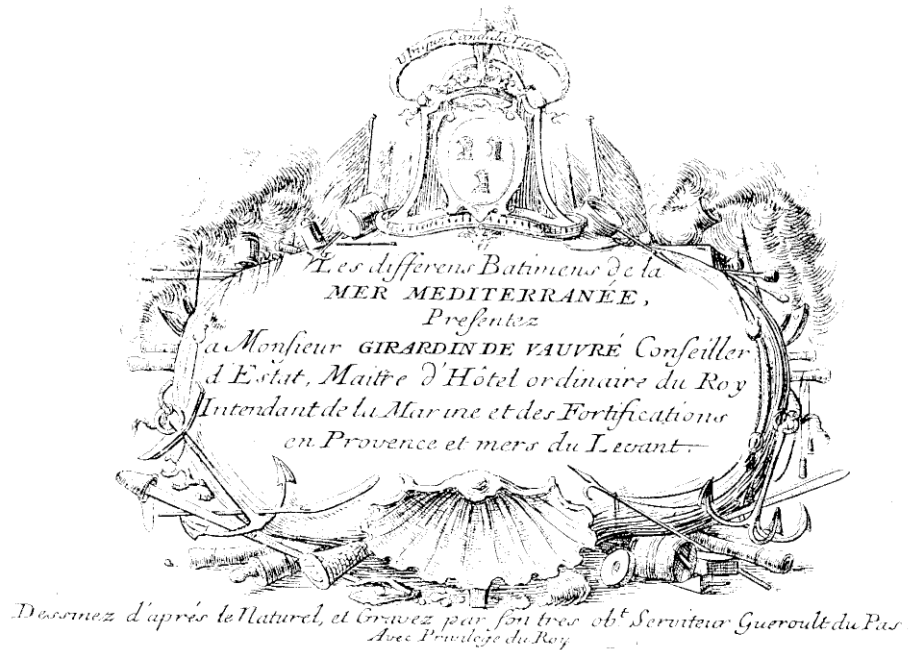 Ubique Candida Virtus
Les differens Batimens de la
MER MEDITERRANÉE,
Presentez
a Monsieur GIRARDIN DE VAUVRÉ Conseiller
d'Estat, Maitre d'Hôtel ordinaire du Roy
Intendant de la Marine et des Fortifications
en Provence et mers du Levant.
Dessinez d'aprés le Naturel, et Gravez par son tres obt. Serviteur Gueroult du Pas
Avec Privilege du Roy